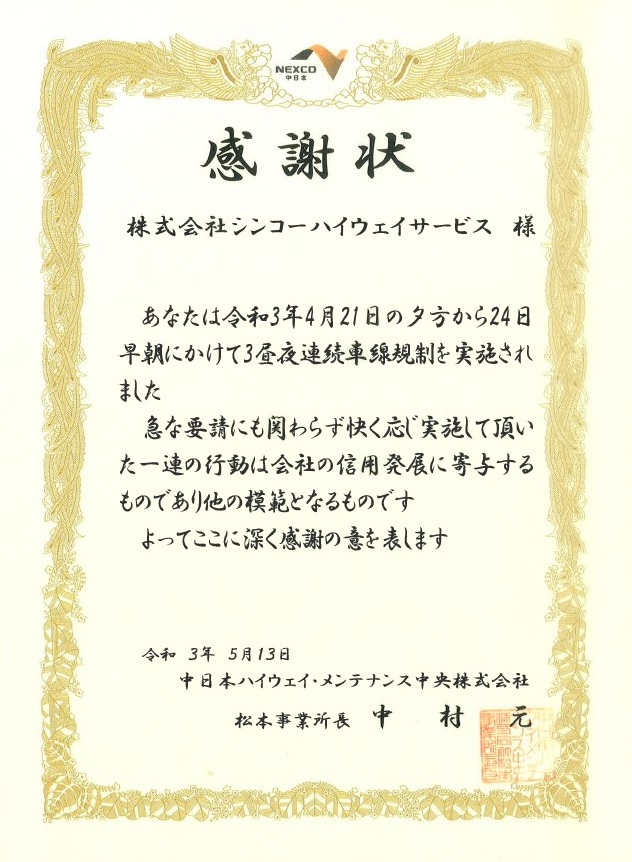 NEXCO
中日本
感謝状
株式会社シンコーハイウェイサービス 様
あなたは令和3年4月21日の夕方から24日
早朝にかけて3昼夜連続車線規制を実施され
ました
急な要請にも関わらず快く応じ実施して頂い
た一連の行動は会社の信用発展に寄与する
ものであり他の模範となるものです
よってここに深く感謝の意を表します
令和 3年 5月13日
中日本ハイウェイ・メンテナンス中央株式会社
松本事業所長 中 村 元